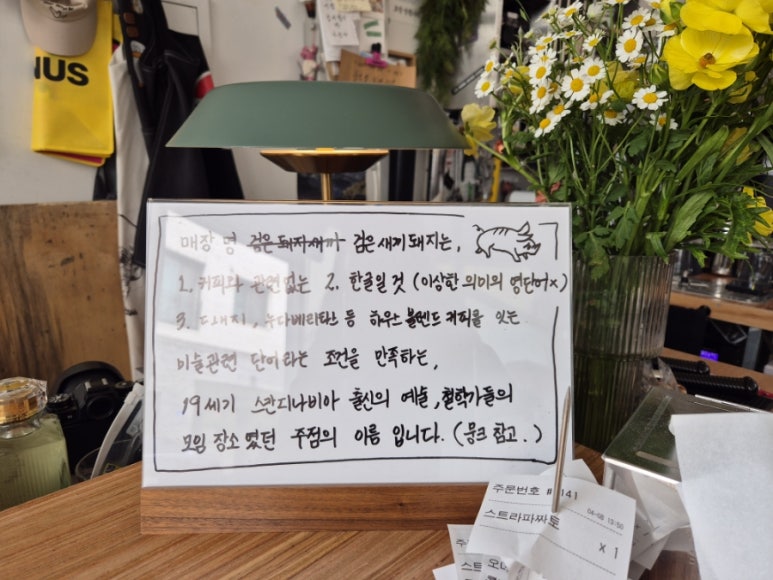 NUS
매장 명 검은돼지새끼 검은새끼돼지는,
1. 커피와 관련없는 2. 한글일 것 (이상한 의미의 영단어x)
3. 드래지, 누다베리타스 등 하우스 블렌드 커피을 잇는
미술관련 단어라는 조건을 만족하는,
19세기 스칸디나비아 출신의 예술, 철학가들의
모임 장소였던 주점의 이름 입니다. (뭉크 참고.)
주문번호 # 141
04-08 13:50
스트라파짜토
x 1